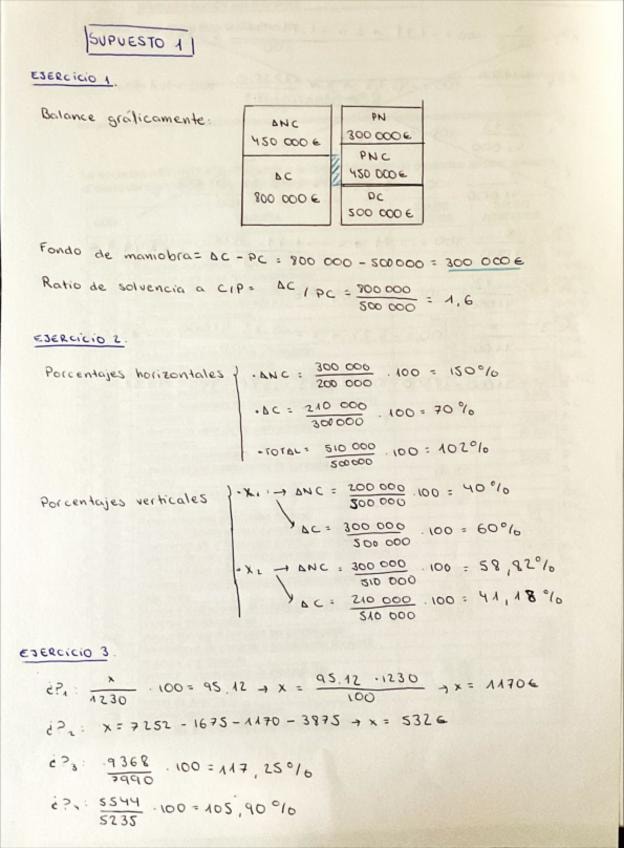 SUPUESTO 1
EJERCICIO 1.
Balance gráficamente:
ANC
450 000€
AC
800 000€
PN
300 000€
PNC
450 000€
DC
500 000€
Fondo de maniobra = AC - PC = 800 000 - 500000 = 300 000 €
Ratio de solvencia a C/P = AC / PC = 800 000 / 500 000 = 1,6
EJERCICIO 2.
Porcentajes horizontales
· ANC = 300 000 / 200 000 · 100 = 150%
· AC = 210 000 / 300000 · 100 = 70%
· TOTAL = 510 000 / 500000 · 100 = 102%
Porcentajes verticales
· X₁ : → ANC = 200 000 / 500 000 · 100 = 40%
AC = 300 000 / 500 000 · 100 = 60%
· X₂ → ANC = 300 000 / 510 000 · 100 = 58,82%
AC = 210 000 / 510 000 · 100 = 41,18%
EJERCICIO 3.
¿?₁ : x / 1230 · 100 = 95,12 → x = 95,12 · 1230 / 100 → x = 1170€
¿?₂ : x = 7252 - 1675 - 1170 - 3875 → x = 532€
¿?₃ : 9368 / 7990 · 100 = 117,25%
¿?₄ : 5544 / 5235 · 100 = 105,90%